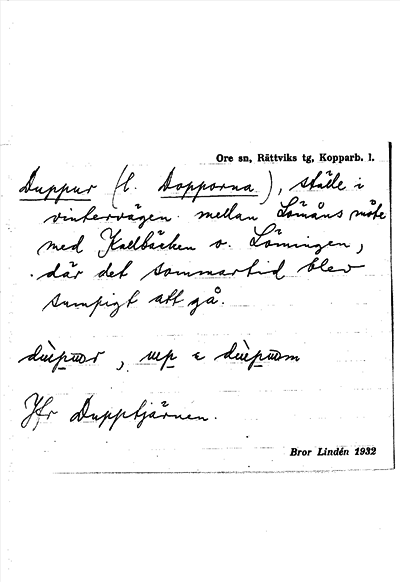 Ore sn, Rättviks tg, Kopparb. l.
Duppur (l. Dopporna), ställe i
vintervägen mellan Lömåns möte
med Kallbäcken o. Löningen,
där det sommartid blev
sumpigt att gå.
Jfr Dupptjärnen.
Bror Lindén 1932